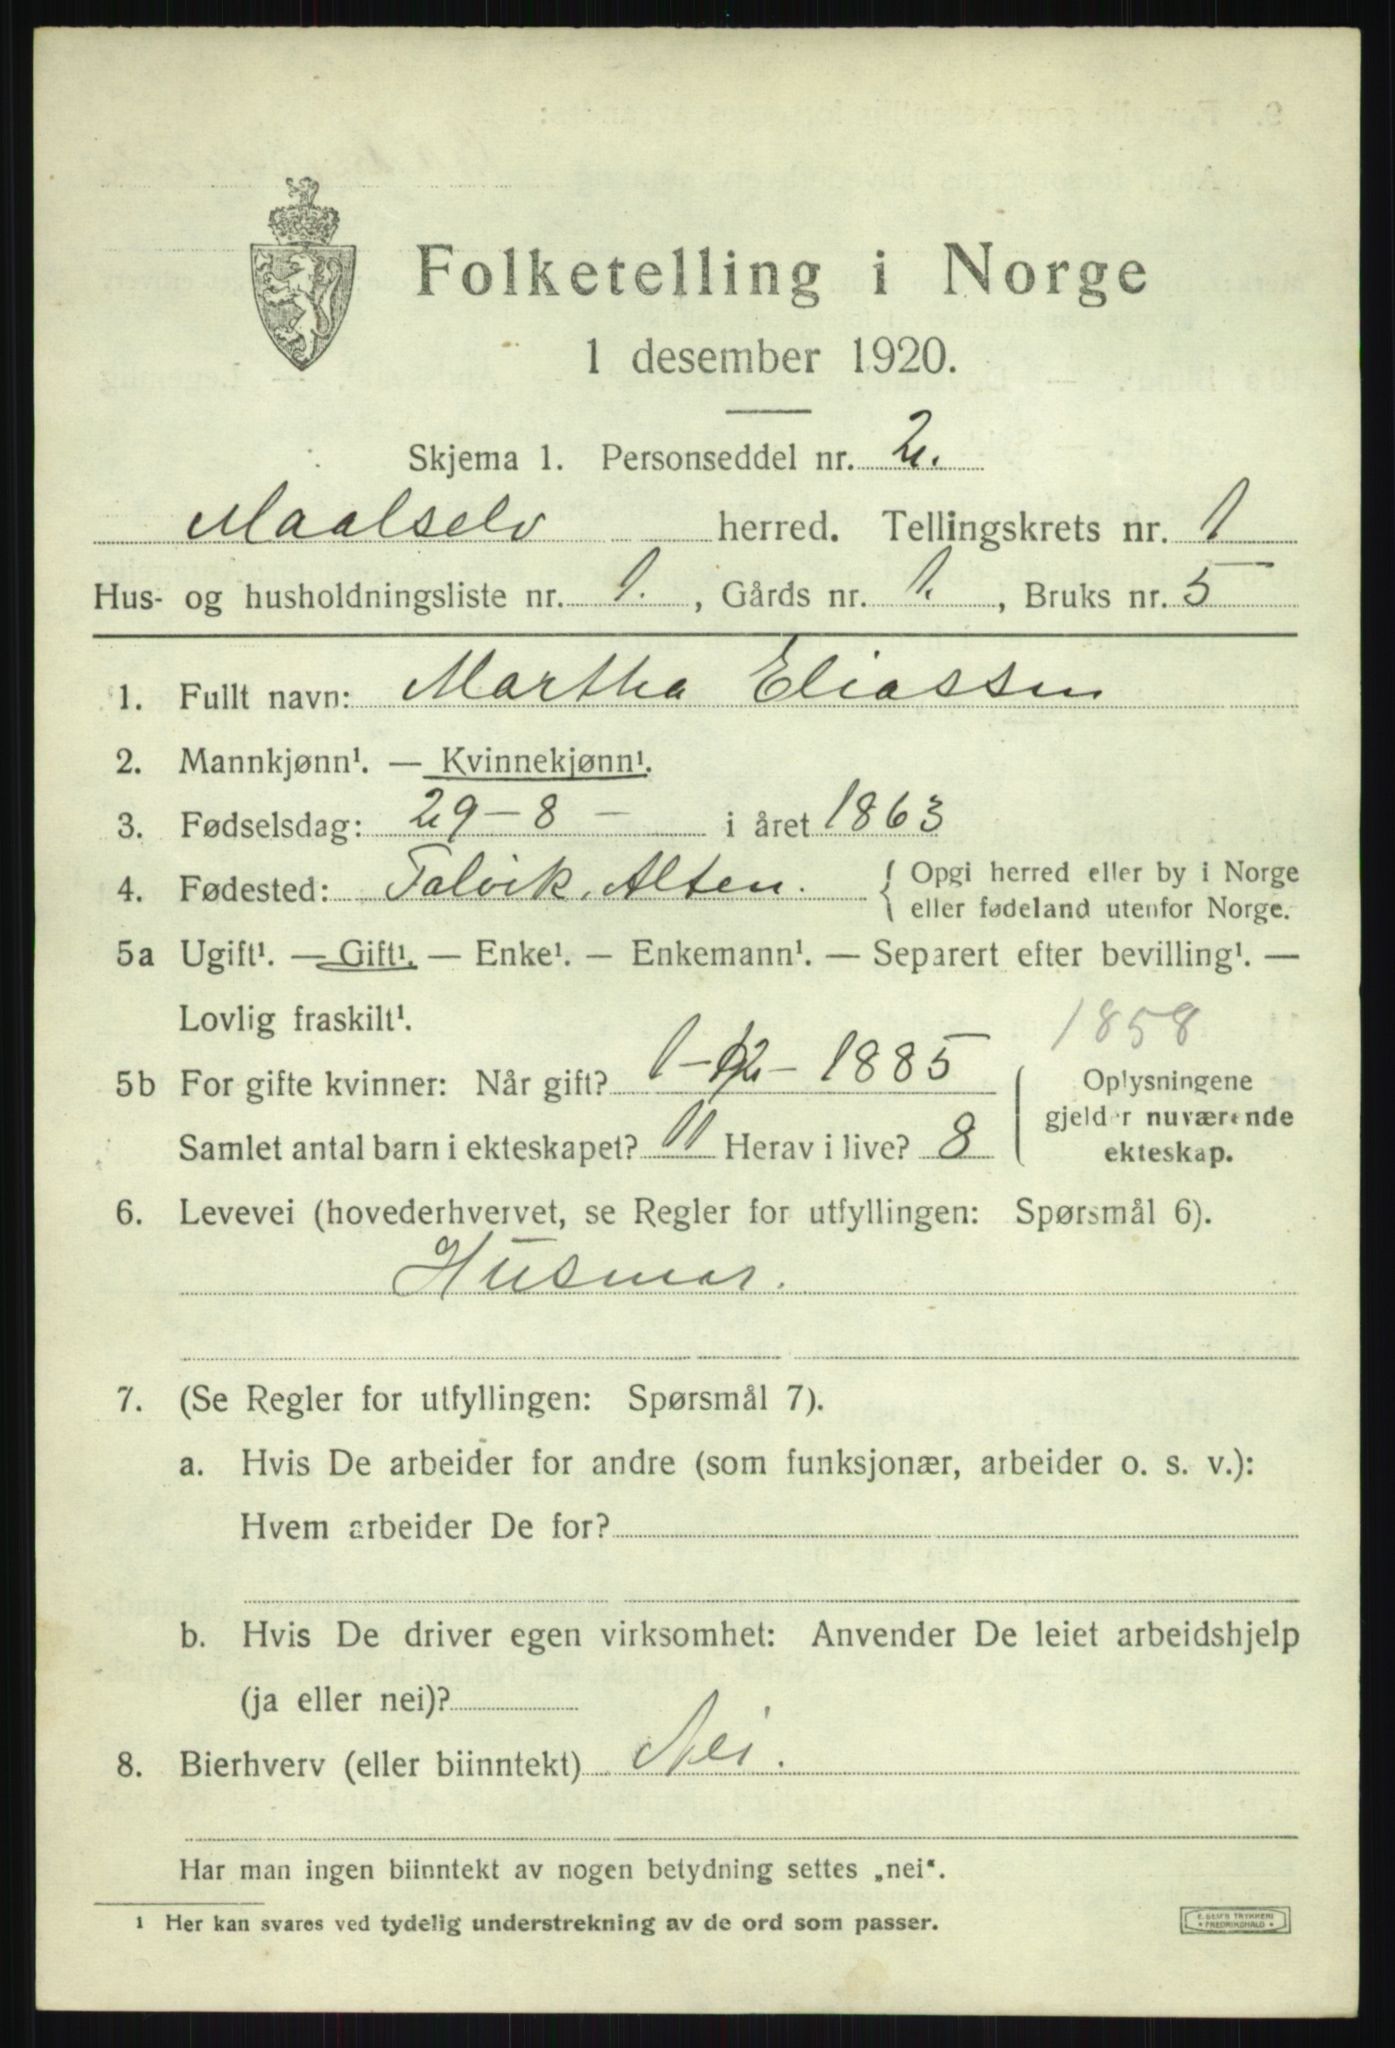 Folketelling i Norge
1 desember 1920.
Skjema 1. Personseddel nr. 2.
Maalselv herred. Tellingskrets nr. 1
Hus- og husholdningsliste nr. 1. , Gårds nr. 1. , Bruks nr. 5
1. Fullt navn: Martha Eliassen
2. Mannkjønn¹. — Kvinnekjønn¹.
3. Fødselsdag: 29 – 8 – i året 1863
4. Fødested: Talvik, Alten. { Opgi herred eller by i Norge
eller fødeland utenfor Norge.
5a Ugift¹. — Gift¹. — Enke¹. — Enkemann¹. — Separert efter bevilling¹. —
Lovlig fraskilt¹.
1858
5b For gifte kvinner: Når gift? 1-12- 1885
Samlet antal barn i ekteskapet? 11 Herav i live? 8
Oplysningene
gjelder nuværende
ekteskap.
6. Levevei (hovederhvervet, se Regler for utfyllingen: Spørsmål 6).
Husmor.
7. (Se Regler for utfyllingen: Spørsmål 7).
a. Hvis De arbeider for andre (som funksjonær, arbeider o. s. v.):
Hvem arbeider De for?
b. Hvis De driver egen virksomhet: Anvender De leiet arbeidshjelp
(ja eller nei)?
8. Bierhverv (eller biinntekt) Nei.
Har man ingen biinntekt av nogen betydning settes „nei“.
¹ Her kan svares ved tydelig understrekning av de ord som passer.
E. SEM'S TRYKKERI
• FREDRIKSHALD •